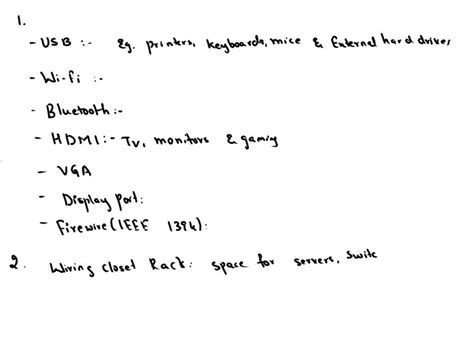 1.
- USB :- Eg. printers, keyboards, mice & External hard drives
- Wi-fi :-
- Bluetooth :-
- HDMI :- Tv, monitors & gaming
- VGA
- Display port:
- Firewire (IEEE 1394):
2. Wiring closet Rack: space for servers, Switc